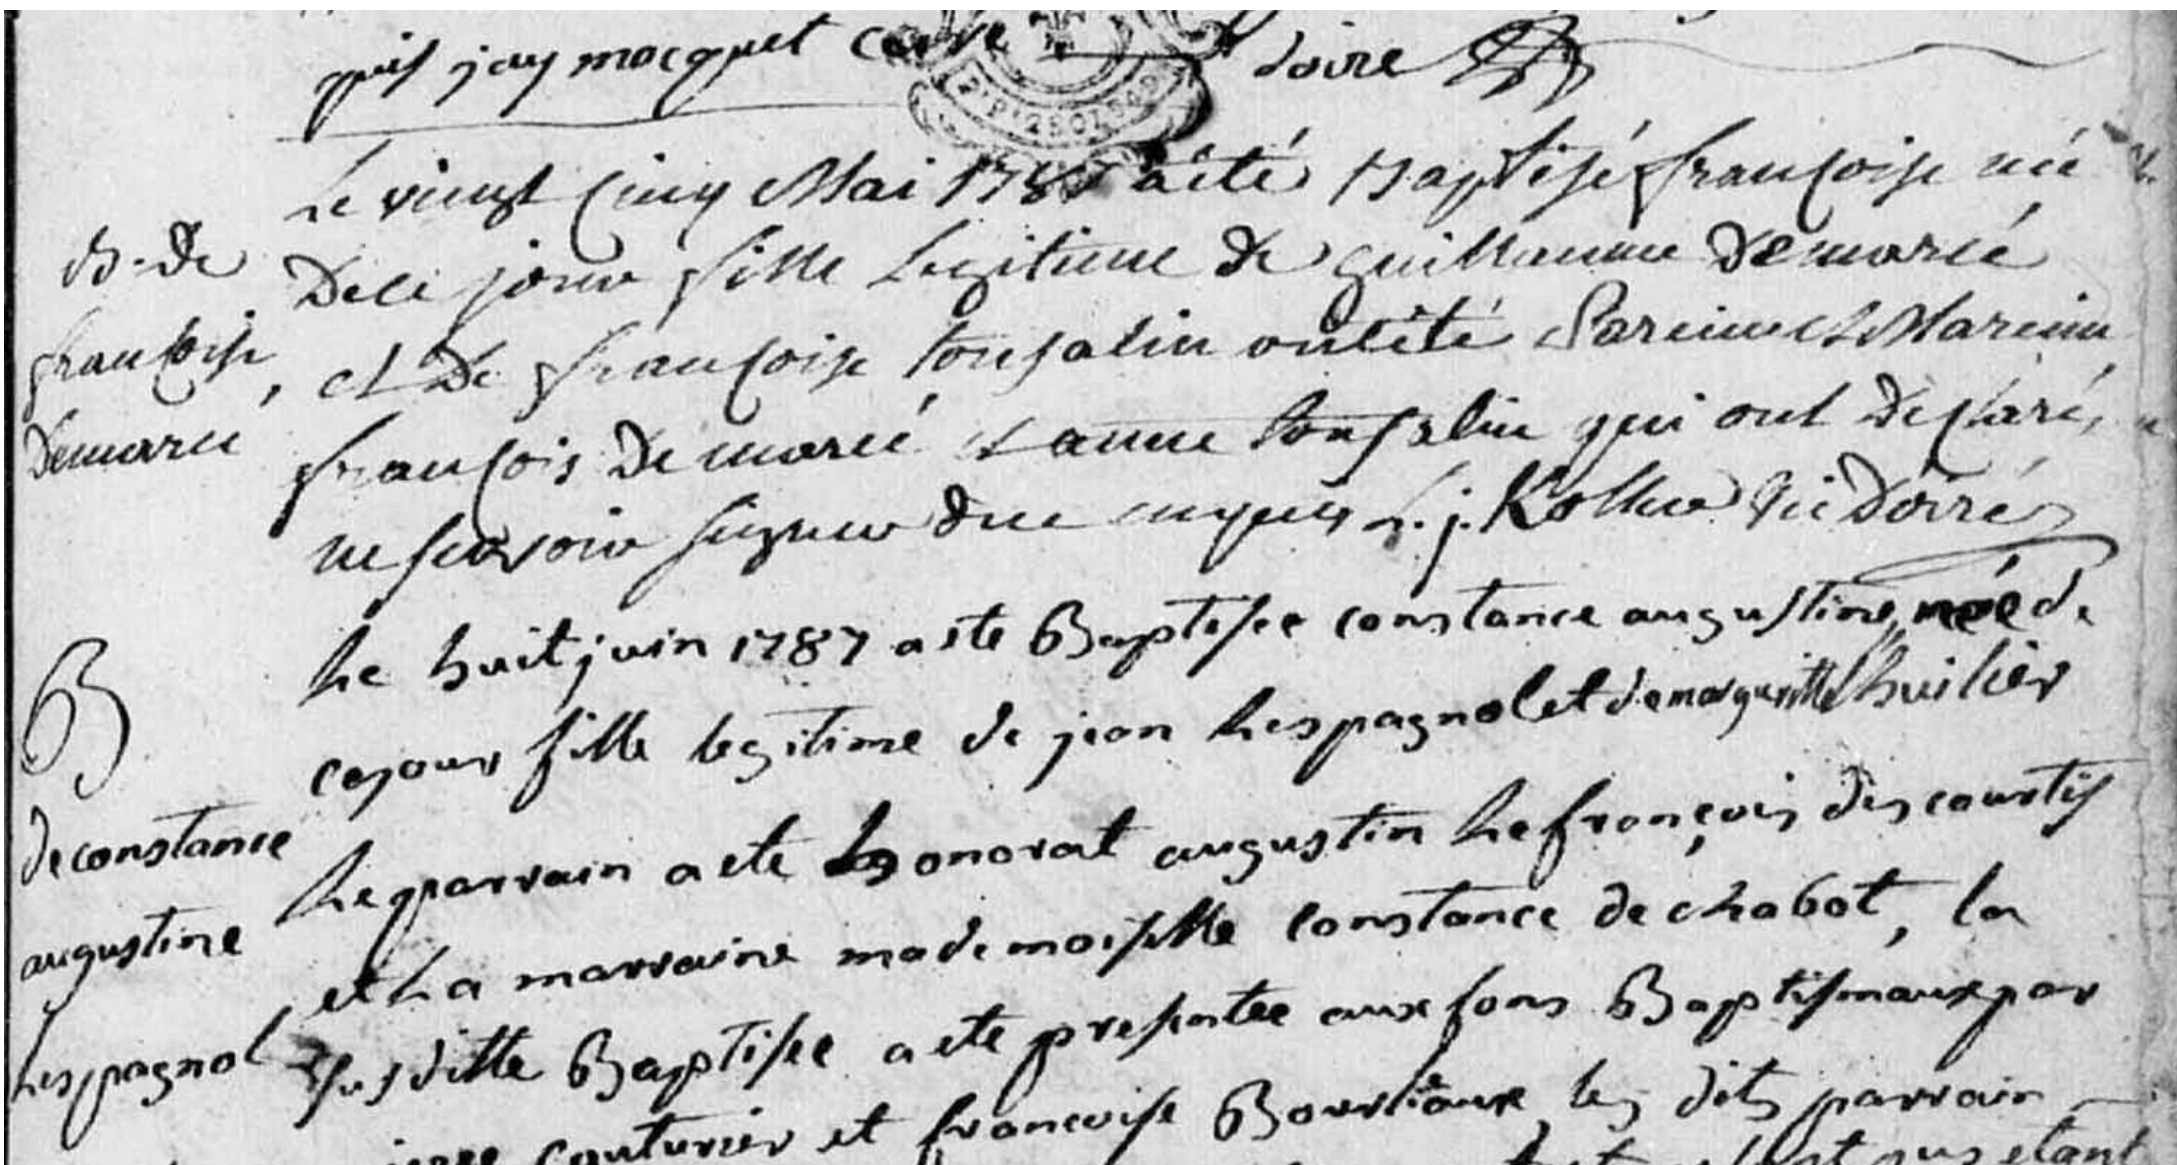 quis jay mocquet curé doire
Le vingt cinq Mai 1787 a été Baptisé françoise née
De ce jour fille Legitime de guillaume Demarcé
et De françoise tousalin ont été Pareine et Mareine
françois De marcé et anne tousalin qui ont Declaré,
ne sçavoir signer de ce enquis L. j. Kolher Vic Doiré
B. de
françoise
Demarcé
Le huit juin 1787 a ete Baptisee constance augustine née de
cejour fille legitime de jean Lespagnol et de margueritte lhuilier
Le parrain a ete honorat augustin Le françois des courtis
et La marraine mademoiselle constance de chabot, la
susditte Baptisee a ete presentee aux fons Baptismaux par
couturier et francoise Bourdaux les dits parrain
B
de constance
augustine
Lespagnol